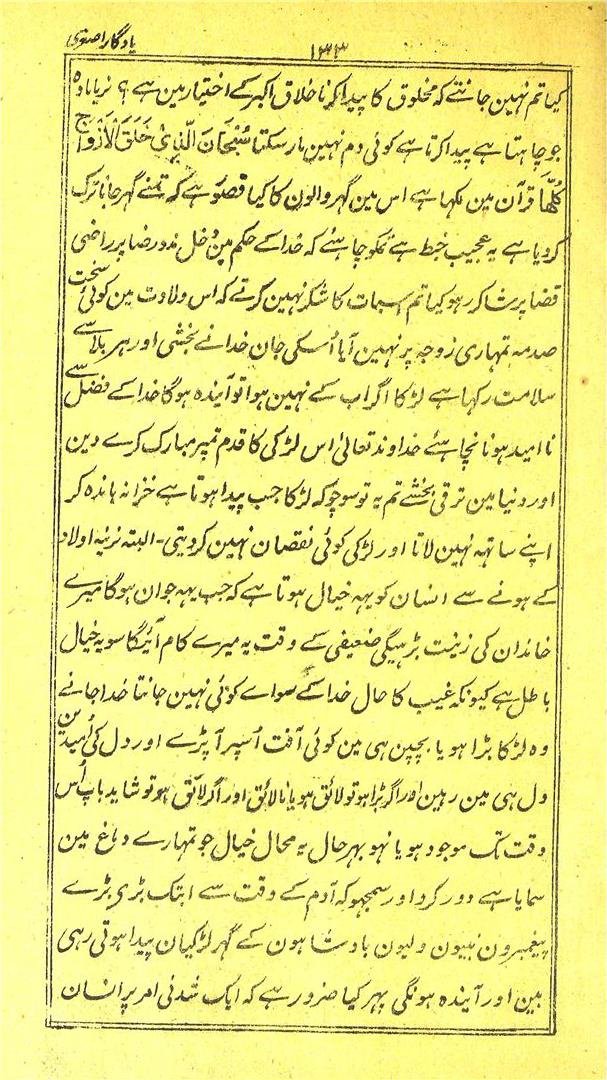 ۱۳۳ یادگار اصغری
کیا تم نہین جانتے کہ مخلوق کا پیدا کرنا خلاق اکبر کے اختیار مین ہے ؟ نر یا مادہ
جو چاہتا ہے پیدا کرتا ہے کوئی دم نہین مار سکتا سُبْحَانَ الَّذِیْ خَلَقَ الْاَزْوَاجَ
کُلَّھَا قرآن مین لکھا ہے اس مین گھر والون کا کیا قصور ہے کہ تمنے گھر جانا ترک
کر دیا ہے یہ عجیب خبط ہے تمکو چاہئے کہ خدا کے حکم مین دخل ندو رضا پر راضی
قضا پر شاکر رہو کیا تم اسبات کا شکر نہین کرتے کہ اس ولادت مین کوئی سخت
صدمہ تمہاری زوجہ پر نہین آیا اُسکی جان خدا نے بخشی اور ہر بلا سے
سلامت رکہا ہے لڑکا اگر اب کے نہین ہوا تو آیندہ ہوگا خدا کے فضل سے
نا امید ہونا نچاہئے خداوند تعالیٰ اس لڑکی کا قدم تمپر مبارک کرے دین
اور دنیا مین ترقی بخشے تم یہ تو سوچو کہ لڑکا جب پیدا ہوتا ہے خزانہ باندہ کر
اپنے ساتہہ نہین لاتا اور لڑکی کوئی نقصان نہین کر دیتی - البتہ نرینہ اولاد
کے ہونے سے انسان کو یہہ خیال ہوتا ہے کہ جب یہہ جوان ہوگا میرے
خاندان کی زینت بڑہیگی ضعیفی کے وقت یہ میرے کام آئیگا سو یہ خیال
باطل ہے کیونکہ غیب کا حال خدا کے سواے کوئی نہین جانتا خدا جانے
وہ لڑکا بڑا ہو یا بچپن ہی مین کوئی آفت اُسپر آ پڑے اور دل کی اُمیدین
دل ہی مین رہین اور اگر بڑا ہو تو لائق ہو یا نالائق اور اگر لائق ہو تو شاید باپ اُس
وقت تک موجود ہو یا نہو بہر حال یہ محال خیال جو تمہارے دماغ مین
سمایا ہے دور کرو اور سمجہو کہ آدم کے وقت سے ابتک بڑی بڑے
پیغمبرون نبیون ولیون بادشاہون کے گھر لڑکیان پیدا ہوتی رہی
ہین اور آیندہ ہونگی پہر کیا ضرور ہے کہ ایک شدنی امر پر انسان